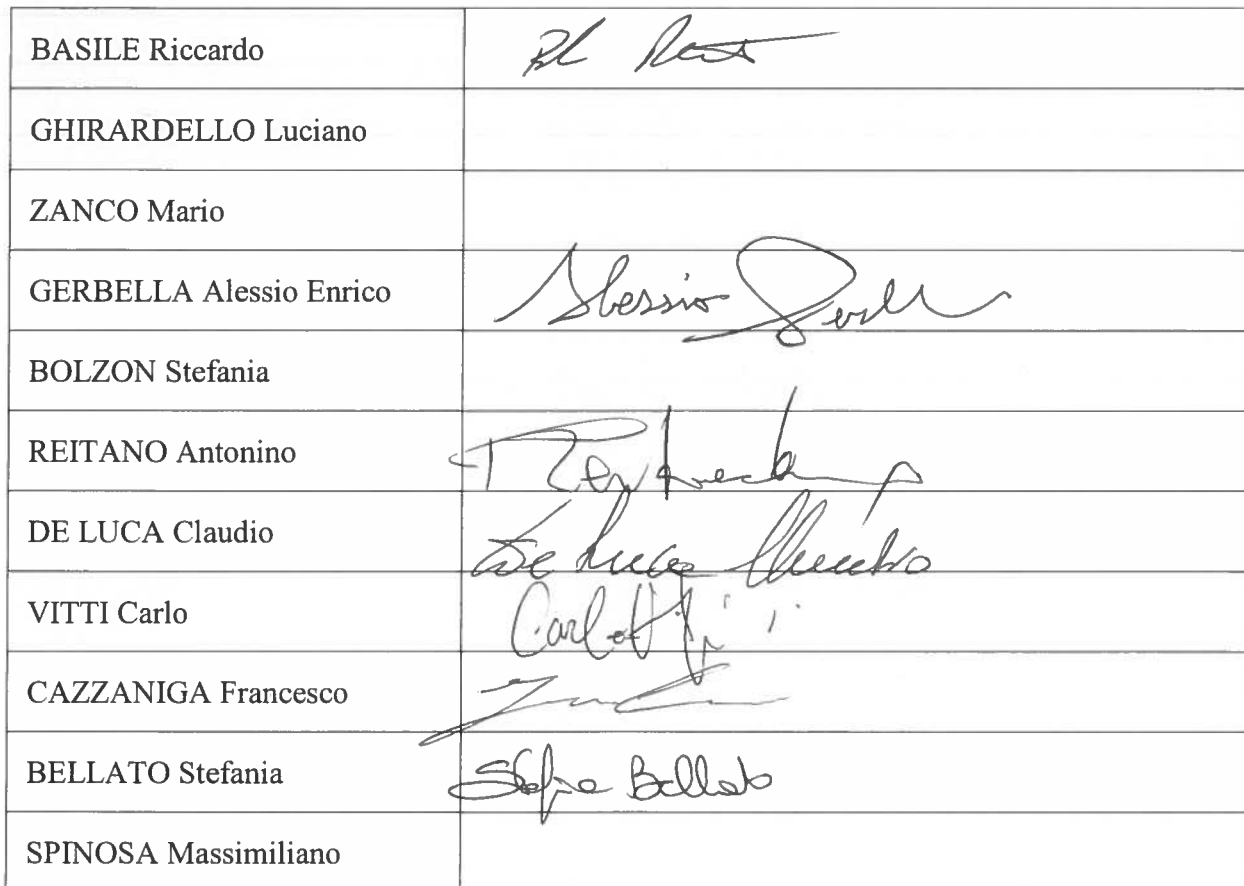 BASILE Riccardo
GHIRARDELLO Luciano
ZANCO Mario
GERBELLA Alessio Enrico Alessio
BOLZON Stefania
REITANO Antonino
DE LUCA Claudio De Luca Claudio
VITTI Carlo Carlo Vitti
CAZZANIGA Francesco
BELLATO Stefania Bellato
SPINOSA Massimiliano